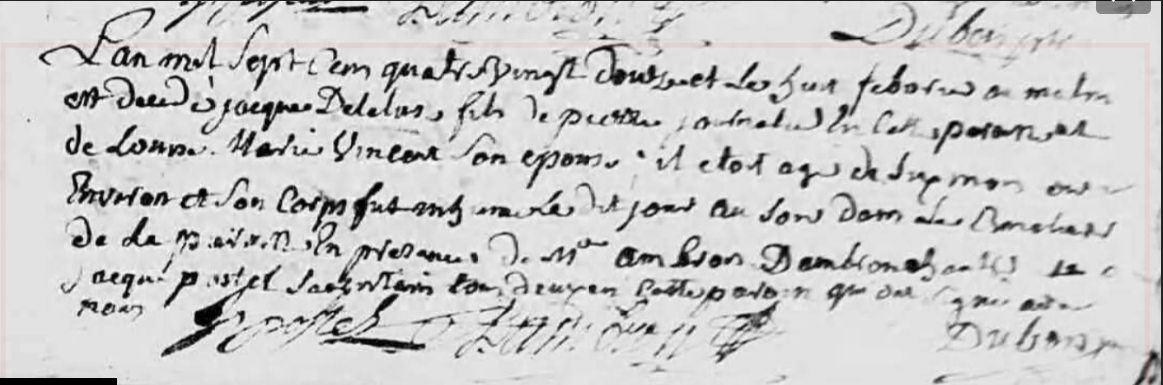 Dubois
L'an mil sept cens quatre vingt douze et le huit febvrie au matin
est decede jacque Delelus fils de pierre journalie En cette paroisse et
de Louise Marie Vincent Son epouse ; il etoit age de six mois ou
Environ et Son Corps fut inhume le dit jour au soir dans le Cimetiere
de la paroisse En presence de Mre ambrois Dambron
jacque postel Sacristain tous deux en cette paroisse qui ont signé avec
nous
Jpostel Dambron